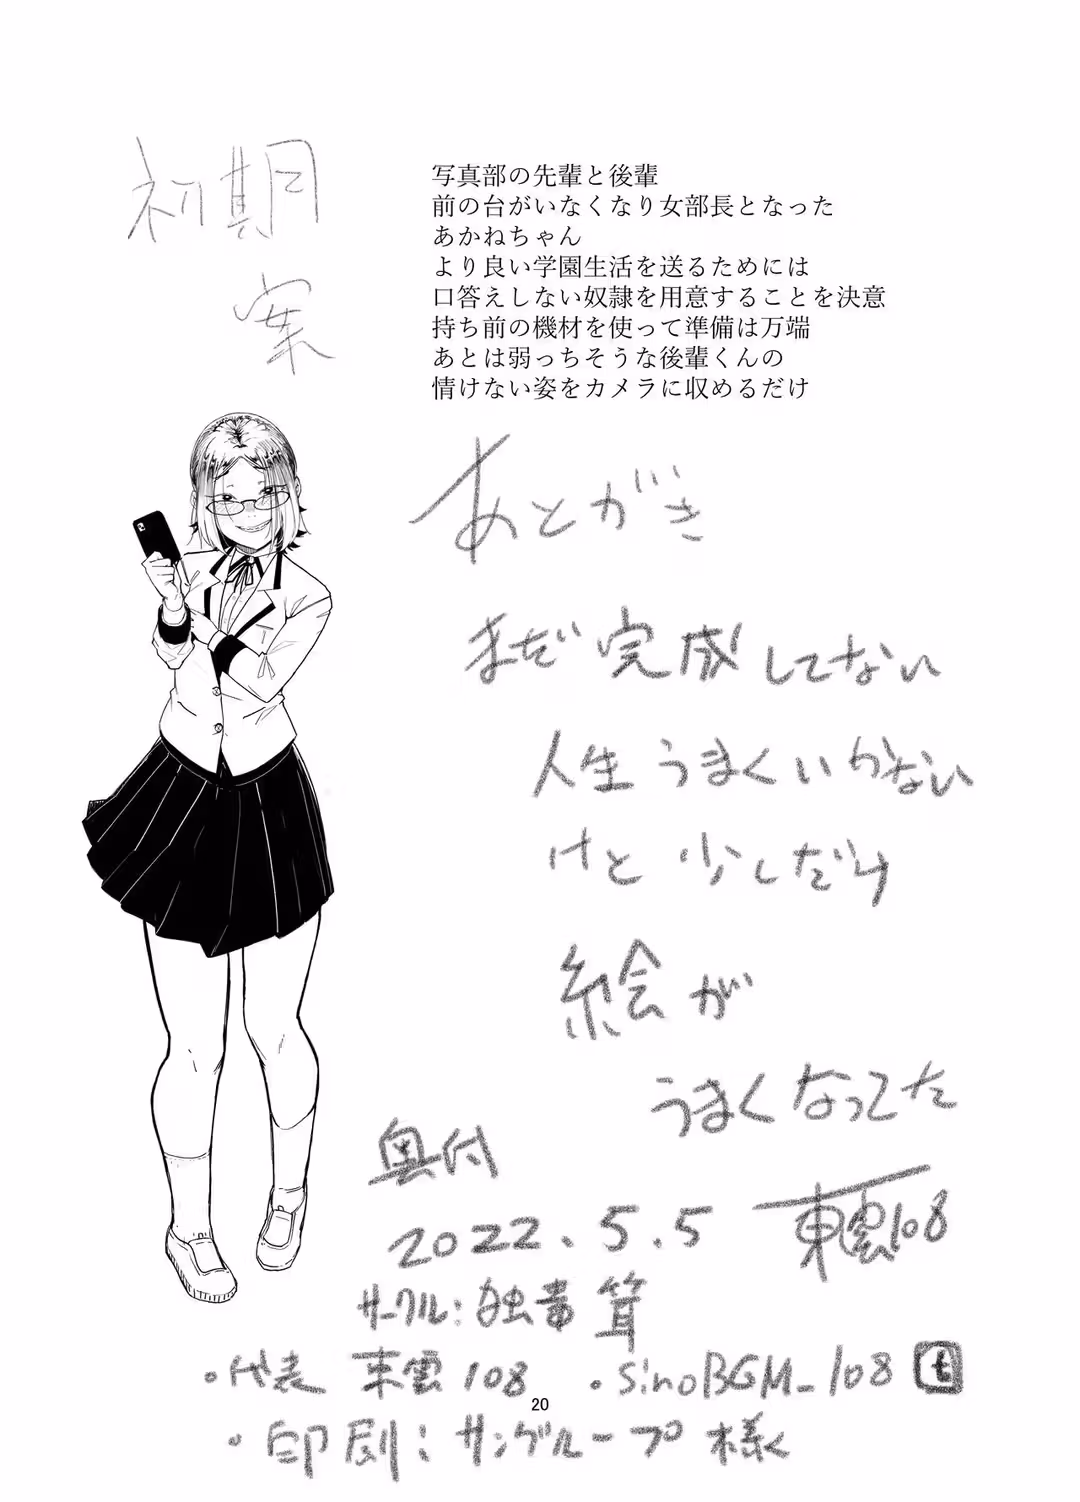 初期
案
写真部の先輩と後輩
前の台がいなくなり女部長となった
あかねちゃん
より良い学園生活を送るためには
口答えしない奴隷を用意することを決意
持ち前の機材を使って準備は万端
あとは弱っちそうな後輩くんの
情けない姿をカメラに収めるだけ
あとがき
まだ完成してない
人生うまくいかない
けど少しだけ
絵が
うまくなってた
奥付
2022.5.5 東雲108
サークル:独毒茸
・代表 東雲108 ・SinoBGM_108 t
・印刷:サングループ様
20